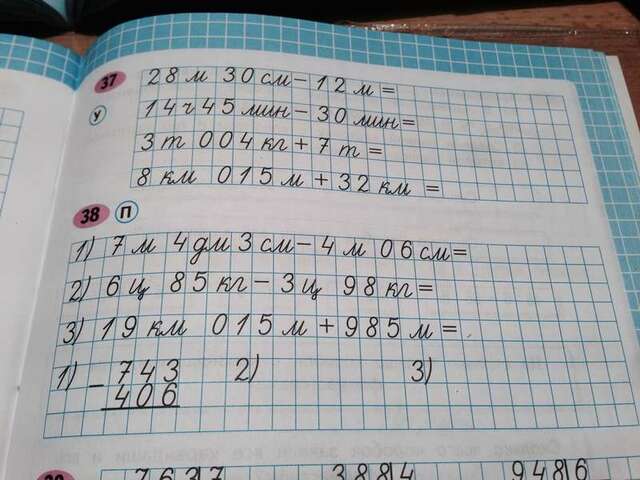 37 28 м 30 см − 12 м =
У 14 ч 45 мин − 30 мин =
3 т 004 кг + 7 т =
8 км 015 м + 32 км =
38 П
1) 7 м 4 дм 3 см − 4 м 06 см =
2) 6 ц 85 кг − 3 ц 98 кг =
3) 19 км 015 м + 985 м =
1) − 743 2) 3)
406
7637 3884 9486